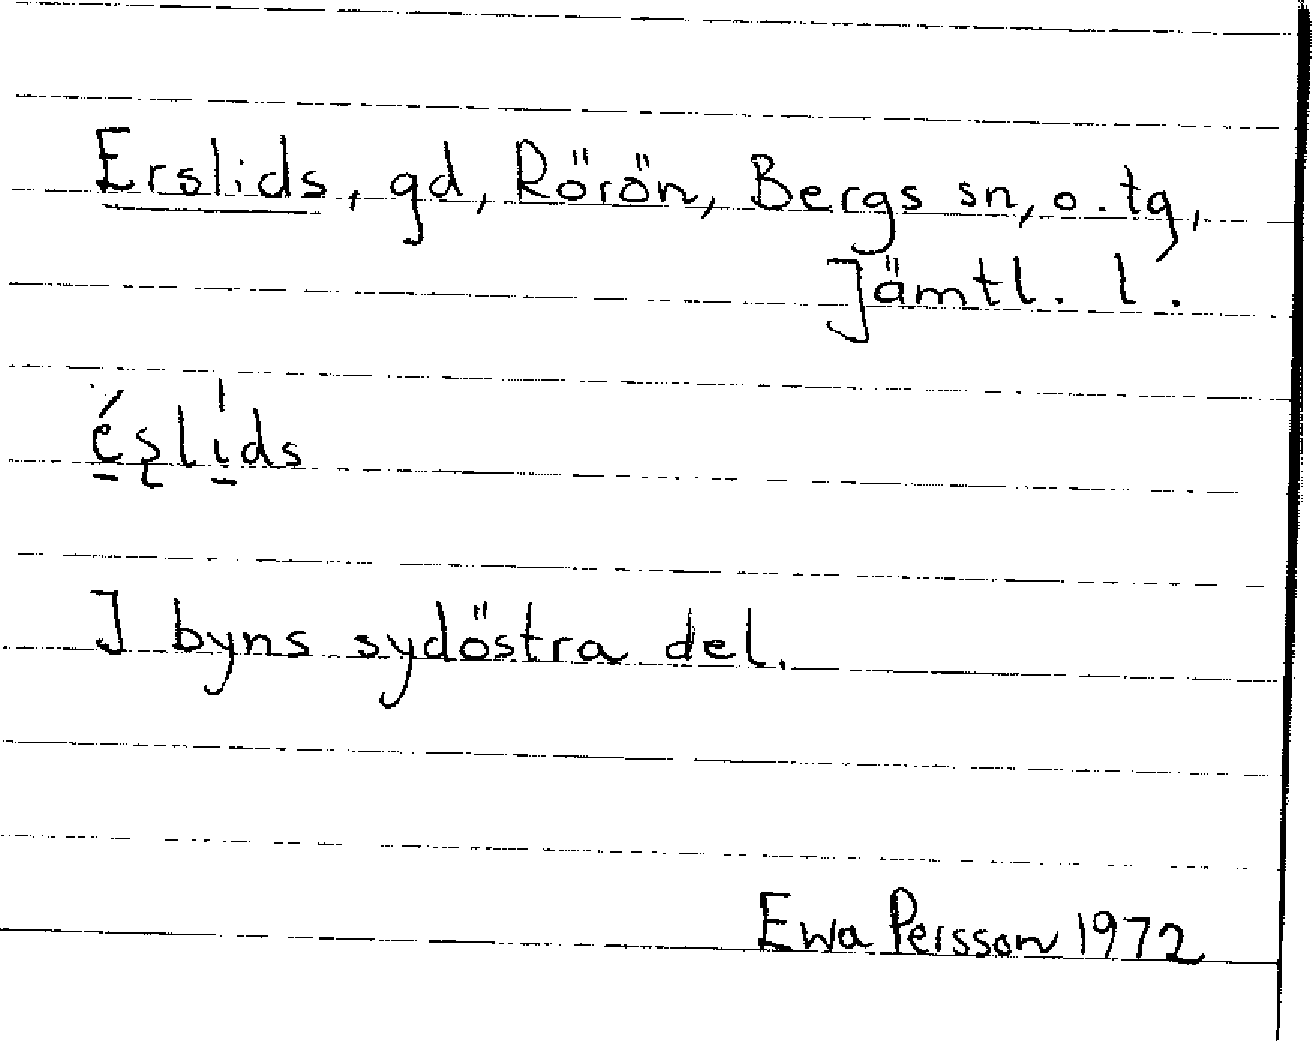 Erslids, gd, Rörön, Bergs sn, o. tg,
Jämtl. l.
é̠şlı̠̍ds
I byns sydöstra del.
Ewa Persson 1972